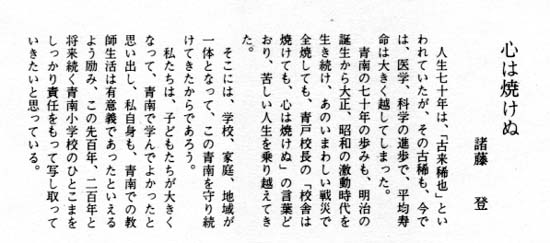 心は焼けぬ
諸藤　登
人生七十年は、「古来稀也」とい
われていたが、その古稀も、今で
は、医学、科学の進歩で、平均寿
命は大きく越してしまった。
青南の七十年の歩みも、明治の
誕生から大正、昭和の激動時代を
生き続け、あのいまわしい戦災で
全焼しても、青戸校長の「校舎は
焼けても、心は焼けぬ」の言葉ど
おり、苦しい人生を乗り越えてき
た。
そこには、学校、家庭、地域が
一体となって、この青南を守り続
けてきたからであろう。
私たちは、子どもたちが大きく
なって、青南で学んでよかったと
思い出し、私自身も、青南での教
師生活は有意義であったといえる
よう励み、この先百年、二百年と
将来続く青南小学校のひとこまを
しっかり責任をもって写し取って
いきたいと思っている。